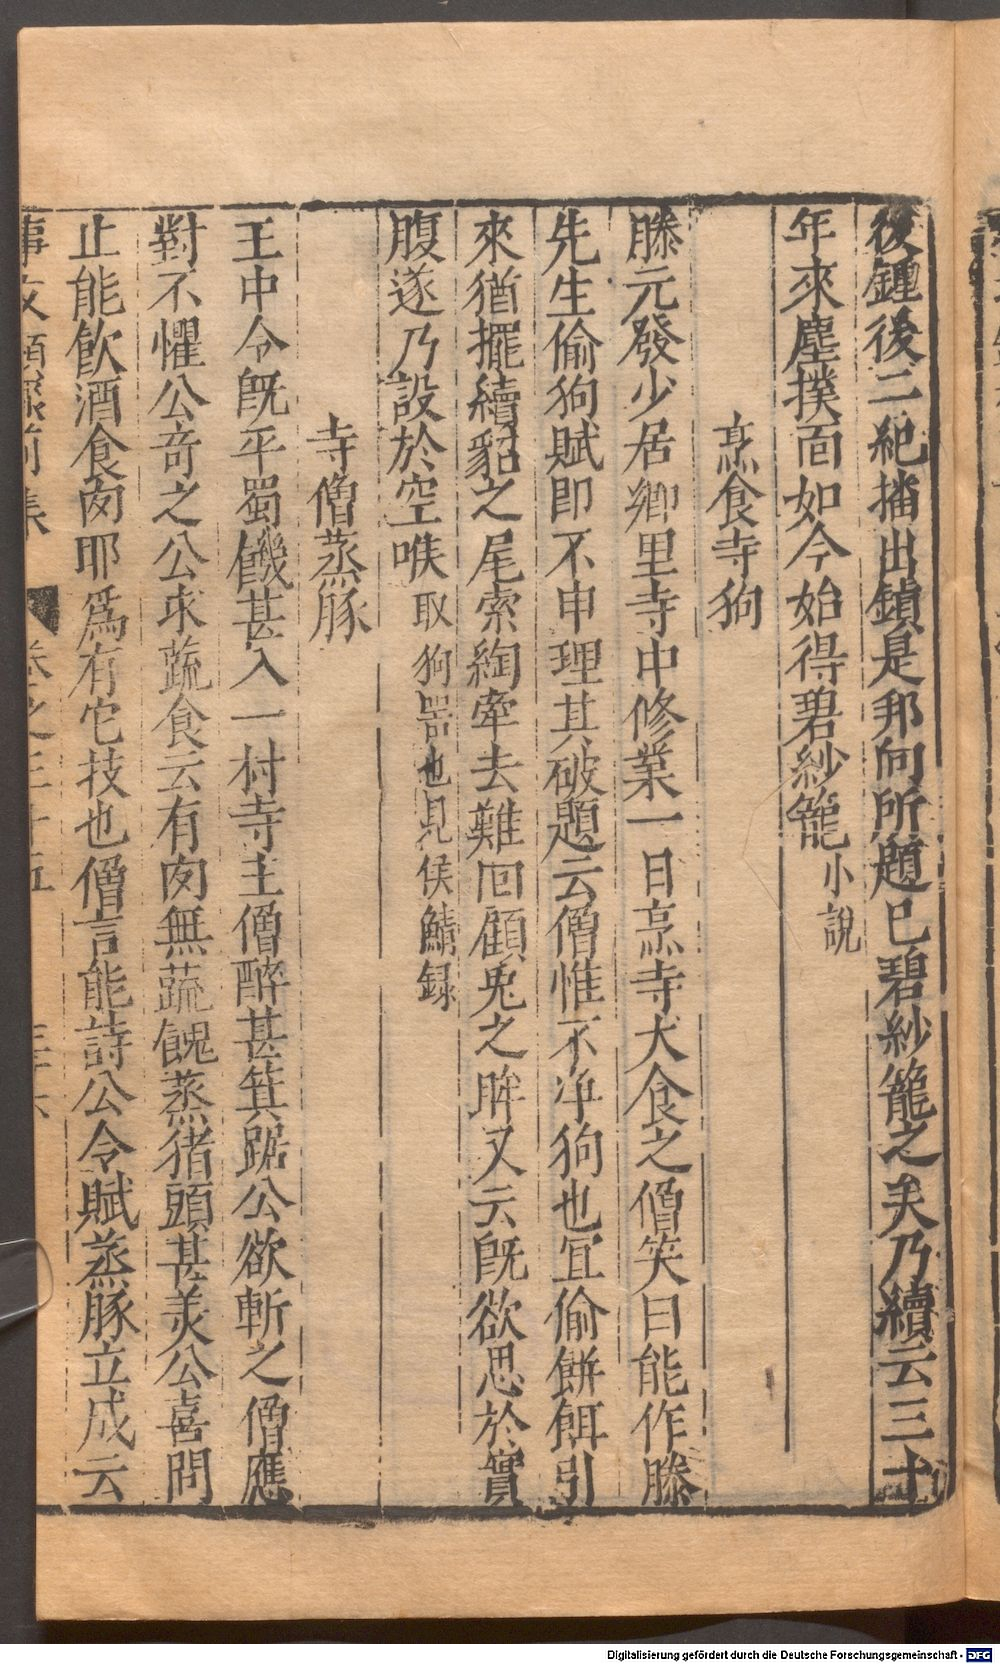 後鍾後二紀播出鎮是邦向所題巳碧紗籠之矣乃續云三十
年來塵撲面如今始得碧紗籠小説
烹食寺狗
滕元發少居鄉里寺中修業一日烹寺犬食之僧笑曰能作滕
先生偷狗賦即不申理其破題云僧惟不净狗也冝偷餅餌引
來猶擺續貂之尾索綯牽去難回顧兎之眸又云旣欲思於實
腹遂乃設於空喉取狗噐也見侯鯖録
寺僧蒸豚
王中令旣平蜀饑甚入一村寺主僧醉甚箕踞公欲斬之僧應
對不懼公竒之公求蔬食云有肉無蔬餽蒸猪頭甚美公喜問
止能飲酒食肉耶爲有它技也僧言能詩公令賦蒸豚立成云
事文類聚前集 卷之三十五
Digitalisierung gefördert durch die Deutsche Forschungsgemeinschaft - DFG